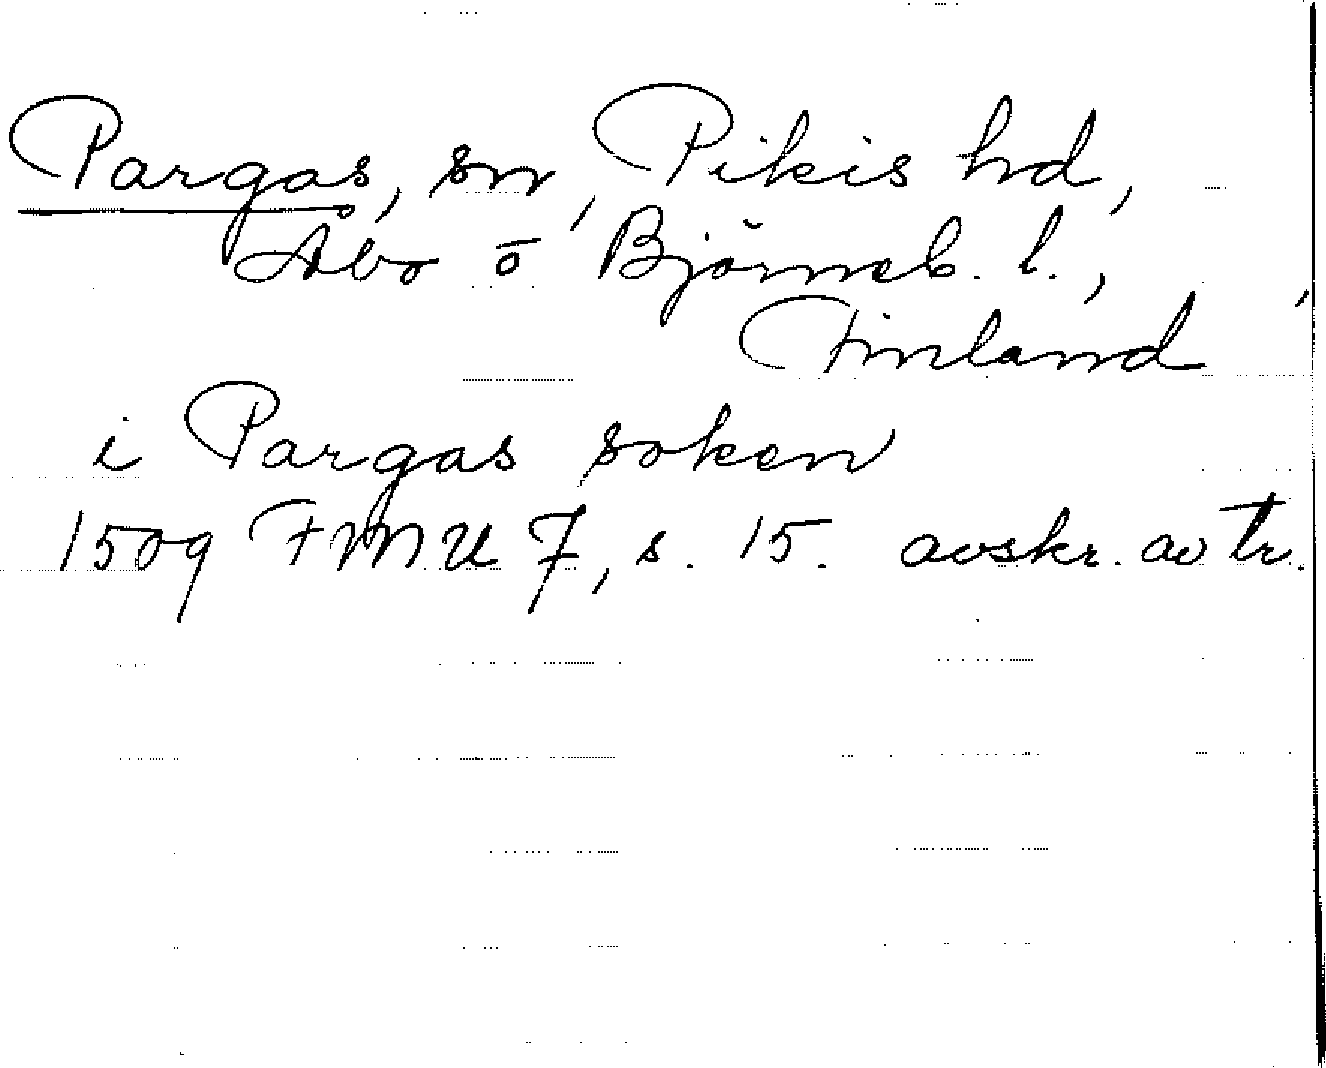 Pargas, sn, Pikis hd,
Åbo o Björneb. l.,
Finland
i Pargas soken
1509 FMU 7, s. 15. avskr. av tr.